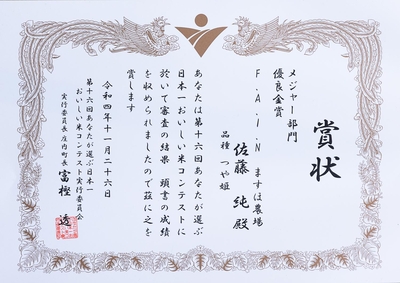 賞状
メジャー部門
優良金賞
F.A.I.N ますほ農場
佐藤 純 殿
品種 つや姫
あなたは第十六回あなたが選ぶ
日本一おいしい米コンテストに
於いて審査の結果 頭書の成績
を収められましたので茲に之を
賞します
令和四年十一月二十六日
第十六回あなたが選ぶ日本一
おいしい米コンテスト実行委員会
実行委員長庄内町長 富樫 透